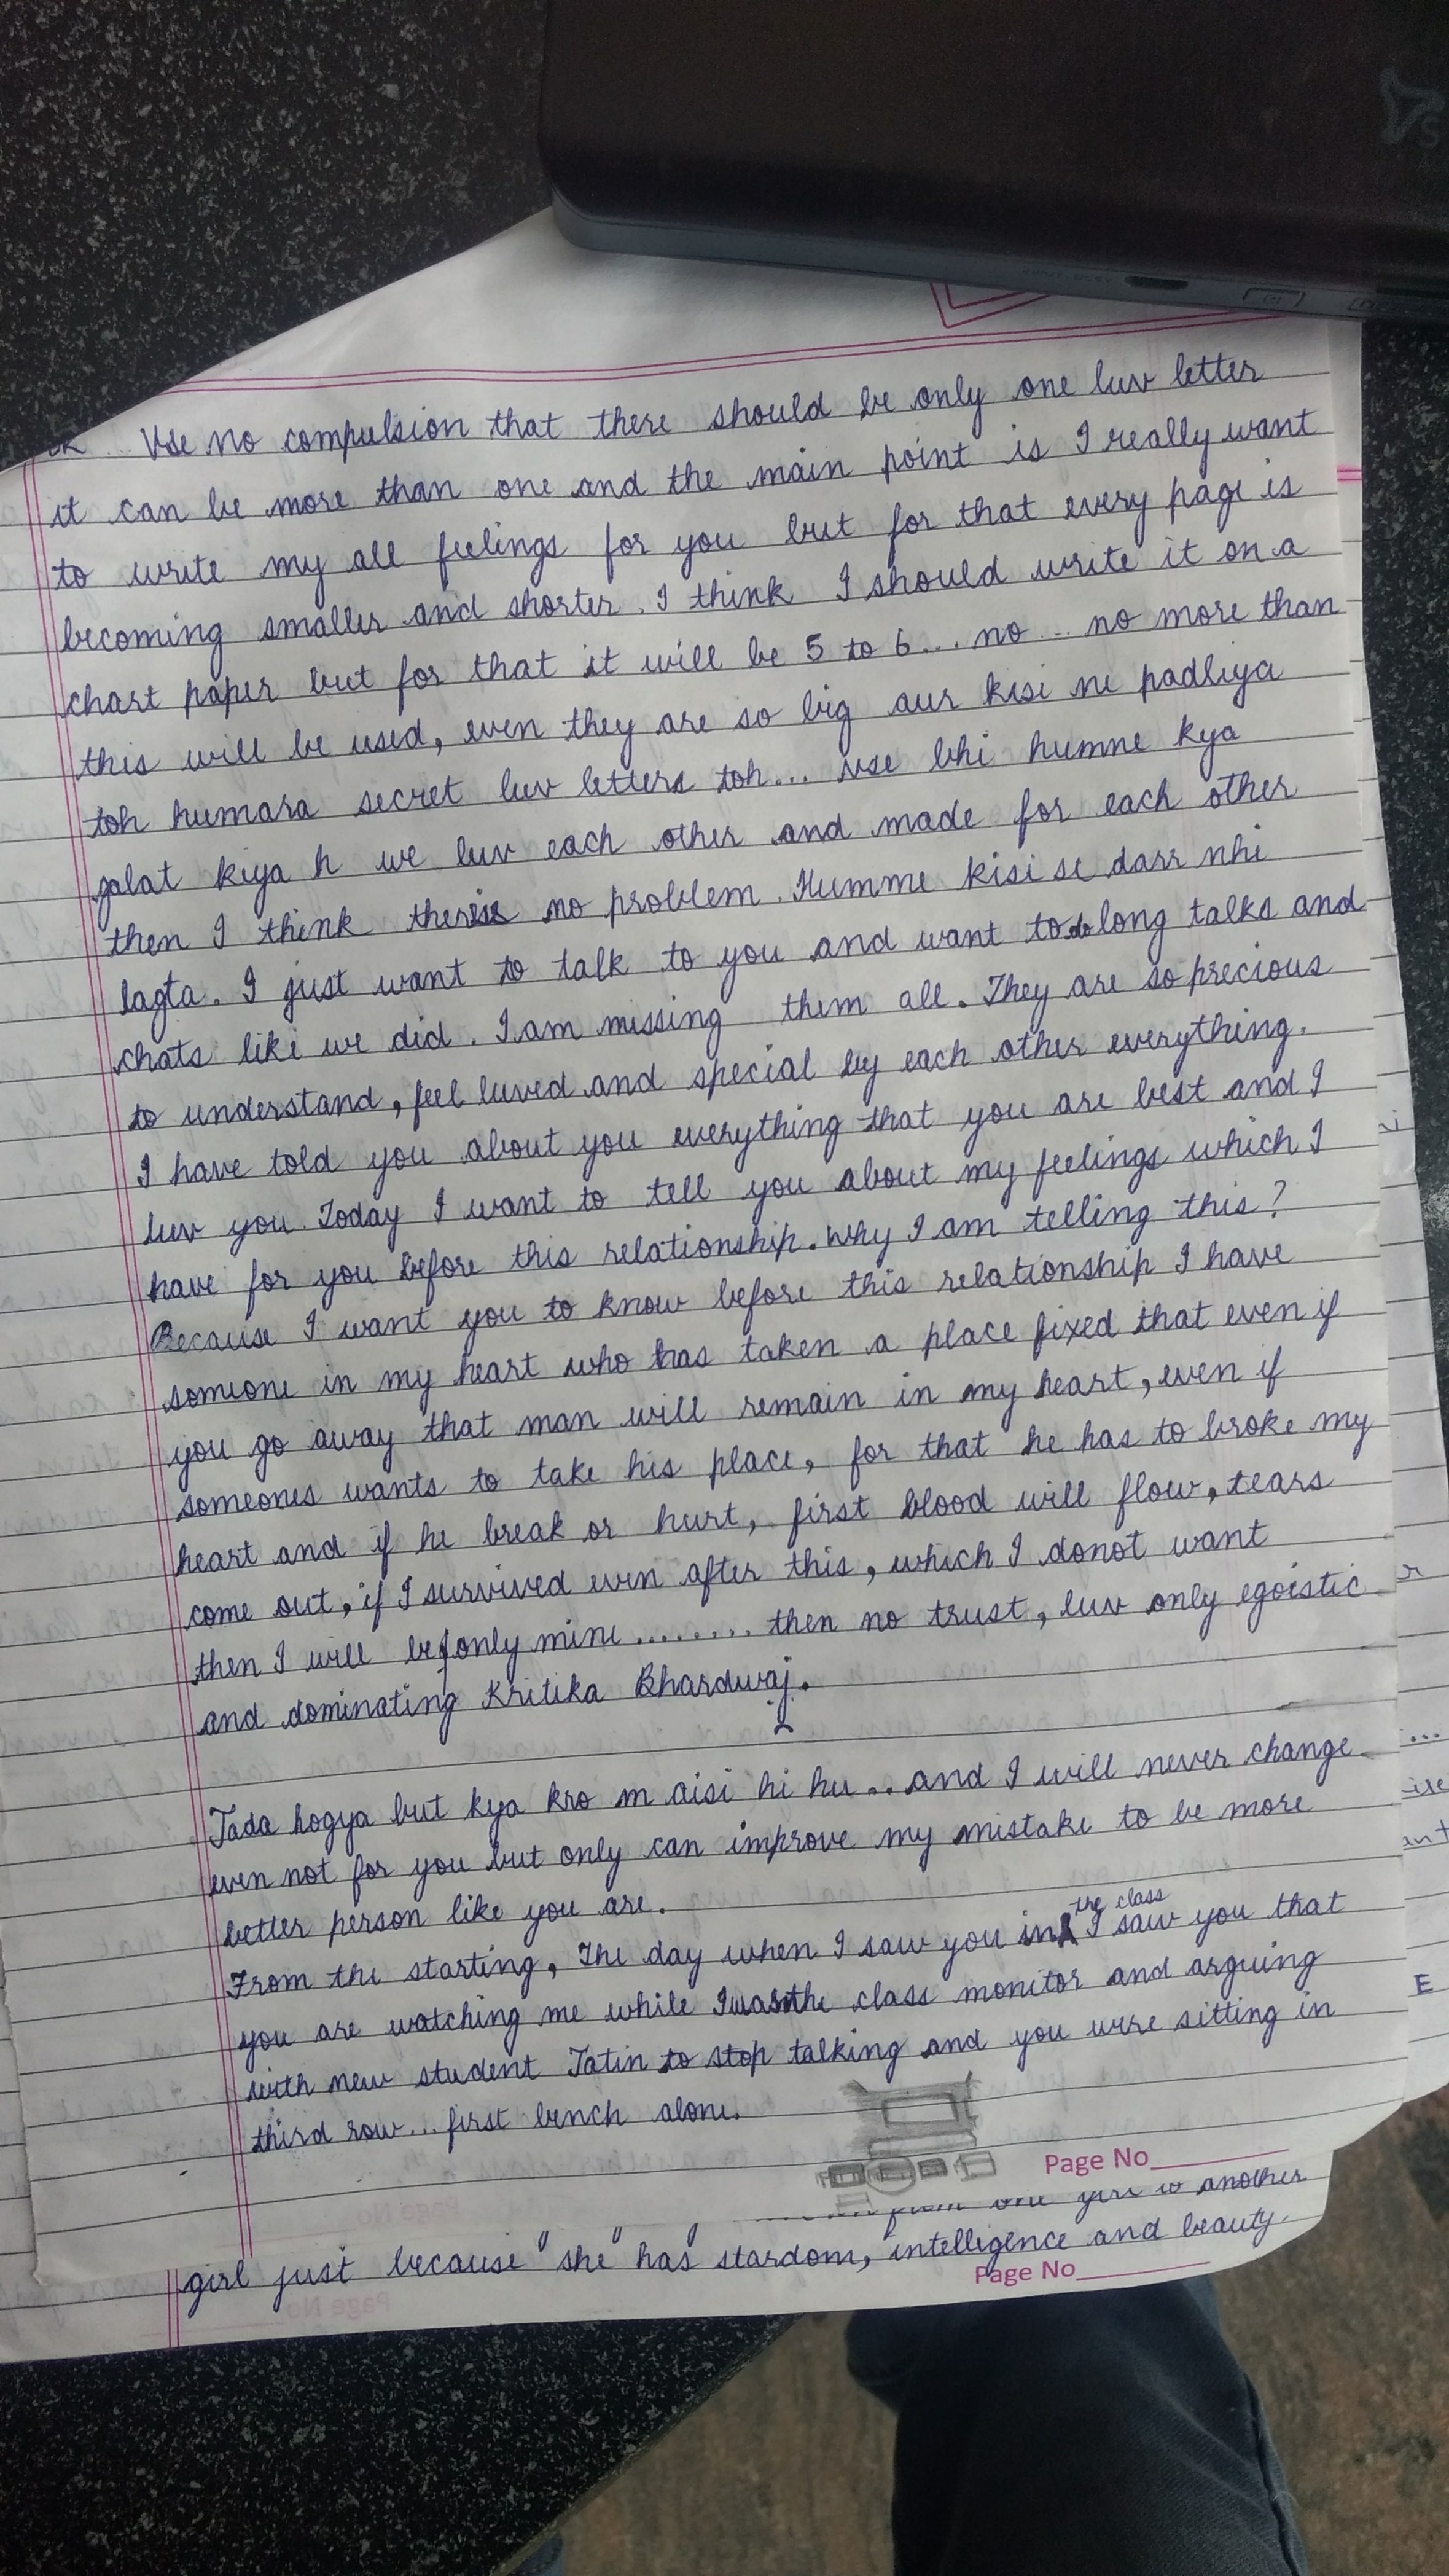 Vse no compulsion that there should be only one luv letter
it can be more than one and the main point is I really want
to write my all feelings for you but for that every page is
becoming smaller and shorter. I think I should write it on a
chart paper but for that it will be 5 to 6... no... no more than
this will be used, even they are so big aur kisi ne padliya
toh humara secret luv letters toh... vse bhi humne kya
galat kiya h we luv each other and made for each other
then I think there is no problem. Humme kisi se darr nhi
lagta. I just want to talk to you and want to do long talks and
chats like we did. I am missing them all. They are so precious
to understand, feel luved and special by each other everything.
I have told you about you everything that you are best and I
luv you. Today I want to tell you about my feelings which I
have for you before this relationship. Why I am telling this?
Because I want you to know before this relationship I have
someone in my heart who has taken a place fixed that even if
you go away that man will remain in my heart, even if
someones wants to take his place, for that he has to broke my
heart and if he break or hurt, first blood will flow, tears
come out, if I survived even after this, which I donot want
then I will be only mine ........ then no trust, luv only egoistic
and dominating Kritika Bhardwaj.
Jada hogya but kya kro m aisi hi hu... and I will never change
even not for you but only can improve my mistake to be more
better person like you are.
From the starting, The day when I saw you in the class I saw you that
you are watching me while I was the class monitor and arguing
with new student Jatin to stop talking and you were sitting in
third row... first bench alone.
Page No
from one girl to another
girl just because "she" has stardom, intelligence and beauty
Page No